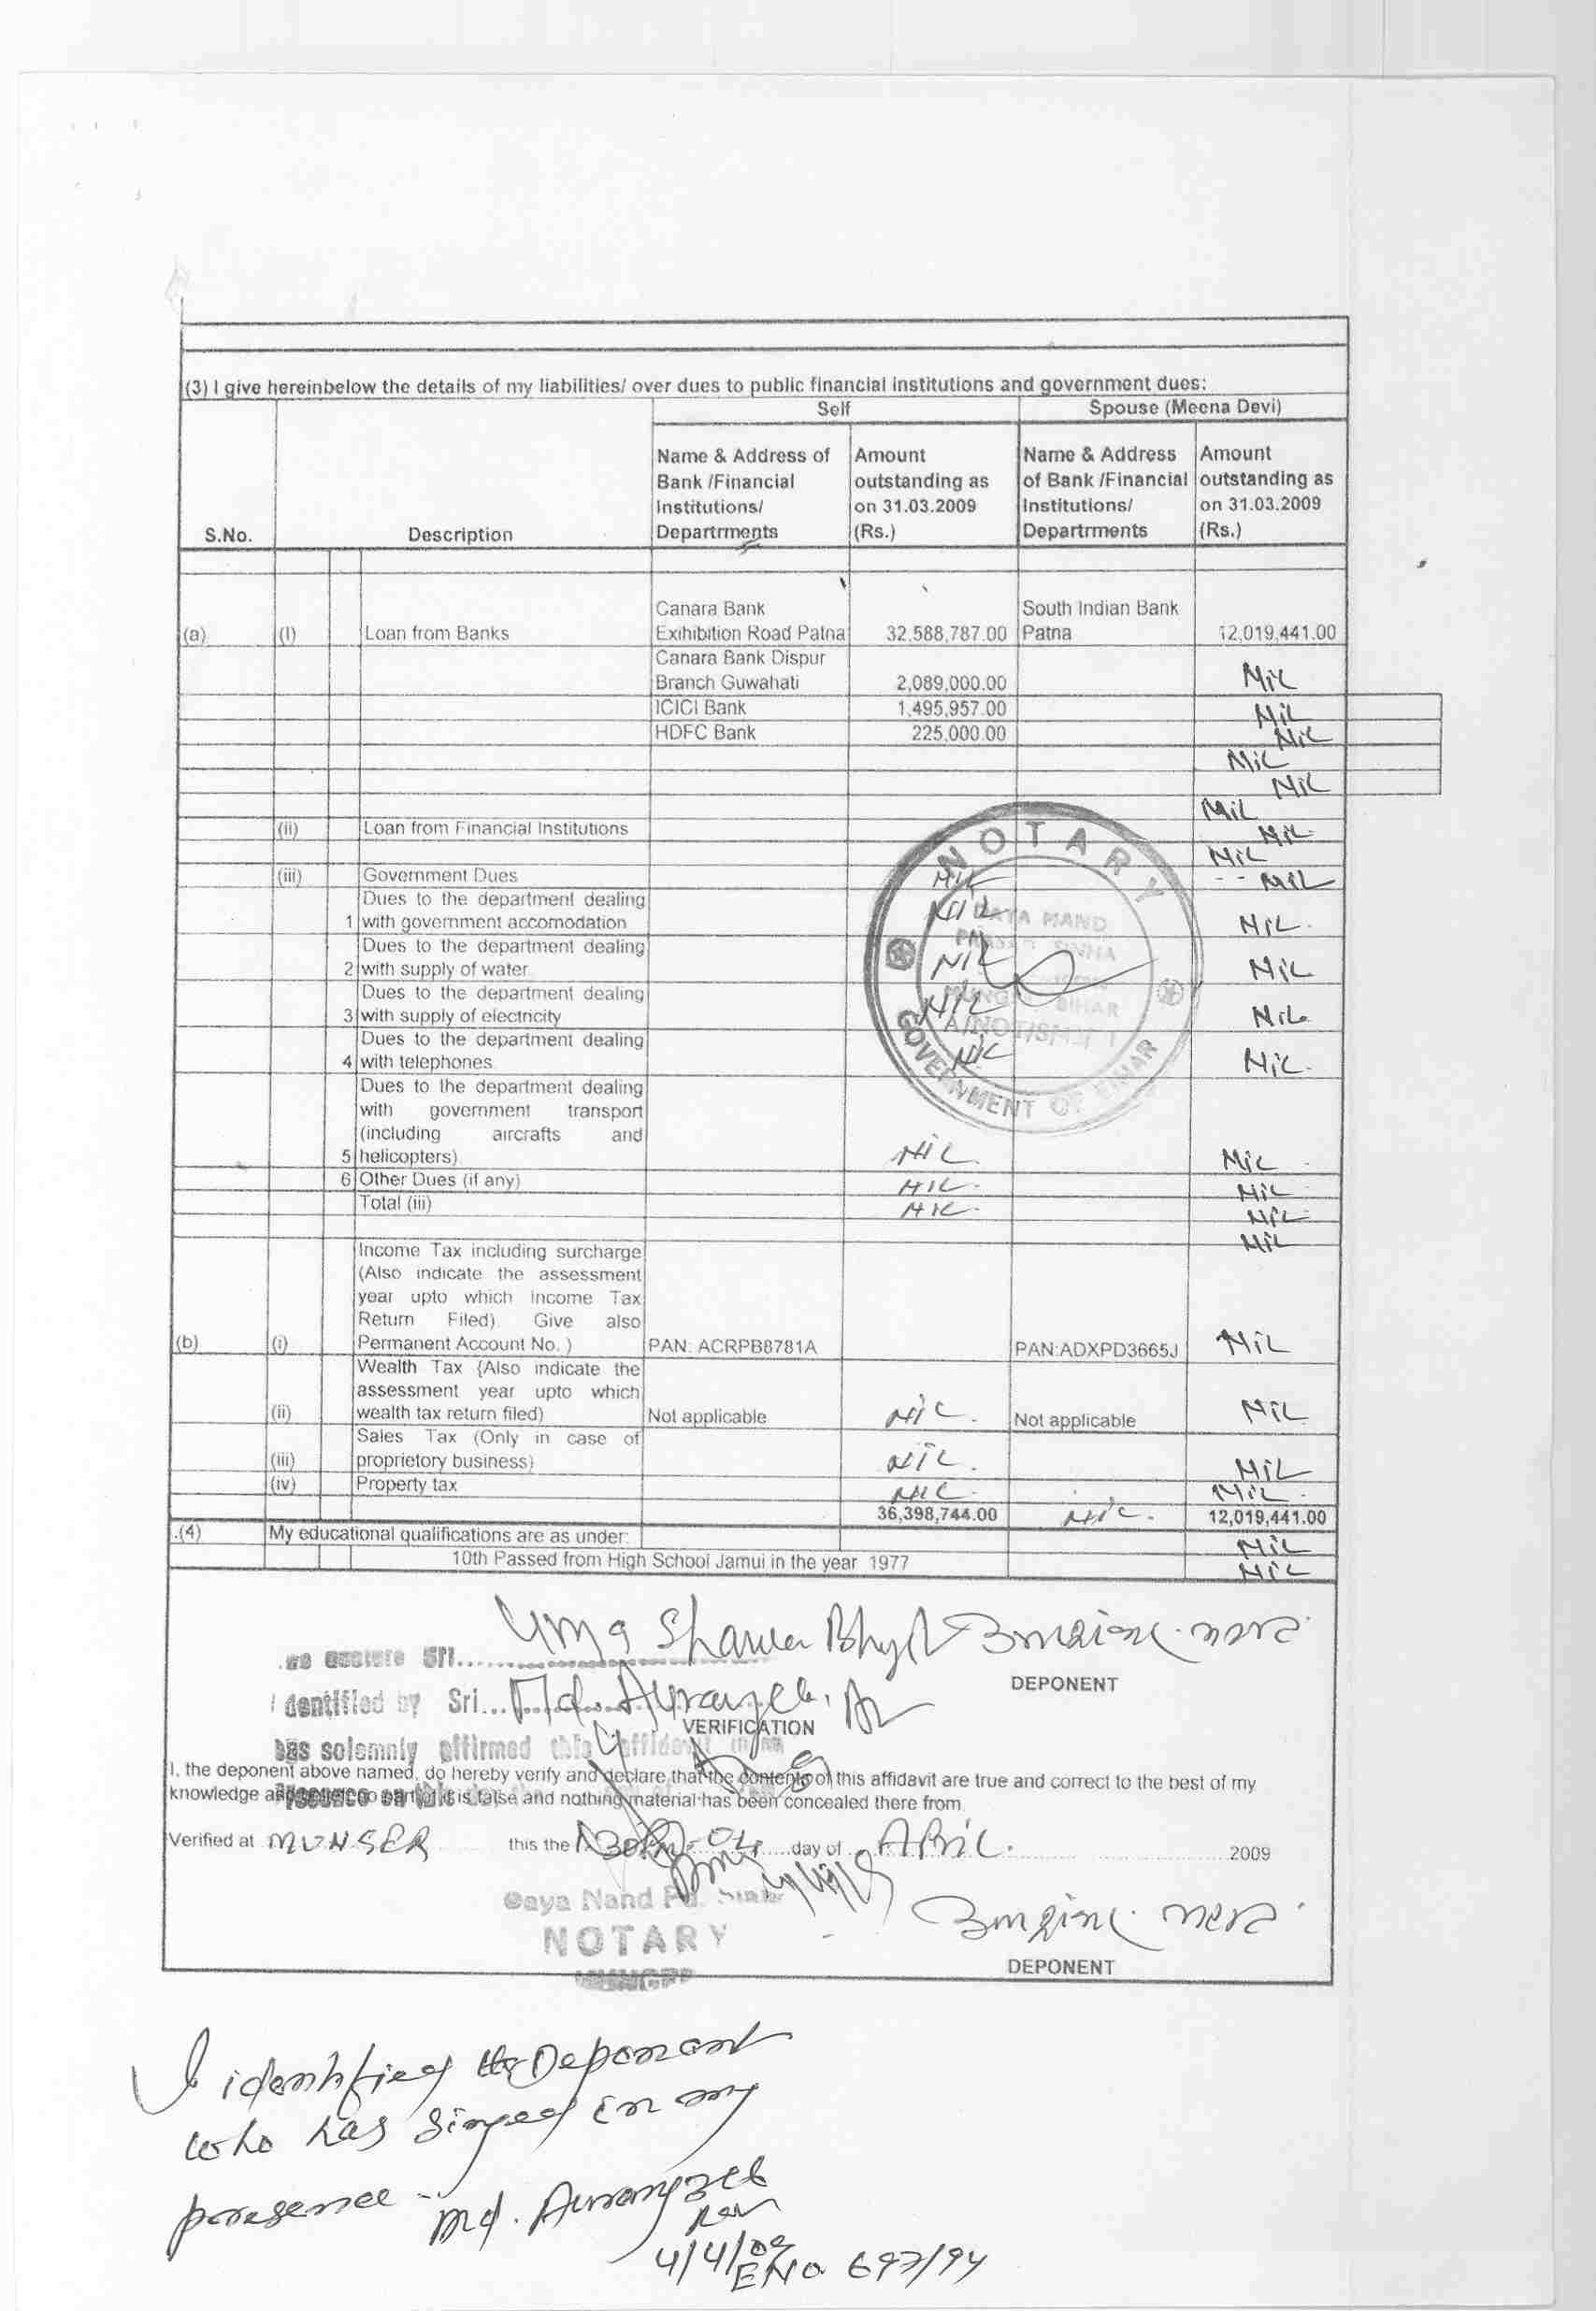 (3) I give hereinbelow the details of my liabilities/ over dues to public financial institutions and government dues:
Self Spouse (Meena Devi)
S.No. Description Name & Address of Bank /Financial Institutions/ Departrments Amount outstanding as on 31.03.2009 (Rs.) Name & Address of Bank /Financial Institutions/ Departrments Amount outstanding as on 31.03.2009 (Rs.)
(a) (I) Loan from Banks Canara Bank Exihibition Road Patna 32,588,787.00 South Indian Bank Patna 12,019,441.00
Canara Bank Dispur Branch Guwahati 2,089,000.00 Nil
ICICI Bank 1,495,957.00 Nil
HDFC Bank 225,000.00 Nil
Nil
Nil
Nil
(ii) Loan from Financial Institutions Nil
Nil
(iii) Government Dues Nil Nil
1 Dues to the department dealing with government accomodation Nil Nil
2 Dues to the department dealing with supply of water Nil Nil
3 Dues to the department dealing with supply of electricity Nil Nil
4 Dues to the department dealing with telephones Nil Nil
5 Dues to the department dealing with government transport (including aircrafts and helicopters) Nil Nil
6 Other Dues (if any) Nil Nil
Total (iii) Nil Nil
Nil
(b) (i) Income Tax including surcharge (Also indicate the assessment year upto which Income Tax Return Filed) Give also Permanent Account No. ) PAN: ACRPB8781A PAN:ADXPD3665J Nil
(ii) Wealth Tax (Also indicate the assessment year upto which wealth tax return filed) Not applicable Nil Not applicable Nil
(iii) Sales Tax (Only in case of proprietory business) Nil Nil
(iv) Property tax Nil Nil
36,398,744.00 Nil 12,019,441.00
.(4) My educational qualifications are as under: Nil
10th Passed from High School Jamui in the year 1977 Nil
NOTARY
GOVERNMENT OF BIHAR
Uma
DEPONENT
Identified by Sri... Md. Aurangzeb
VERIFICATION
has solemnly affirmed this affidavit
I, the deponent above named, do hereby verify and declare that the contents of this affidavit are true and correct to the best of my
knowledge and no part of it is false and nothing material has been concealed there from
Verified at MUNGER this the day of April. 2009
Gaya Nand Pd.
NOTARY
DEPONENT
I identified the Deponent
who has singed in my
presence.
Md. Aurangzeb
4/4/09
ENo 697/94